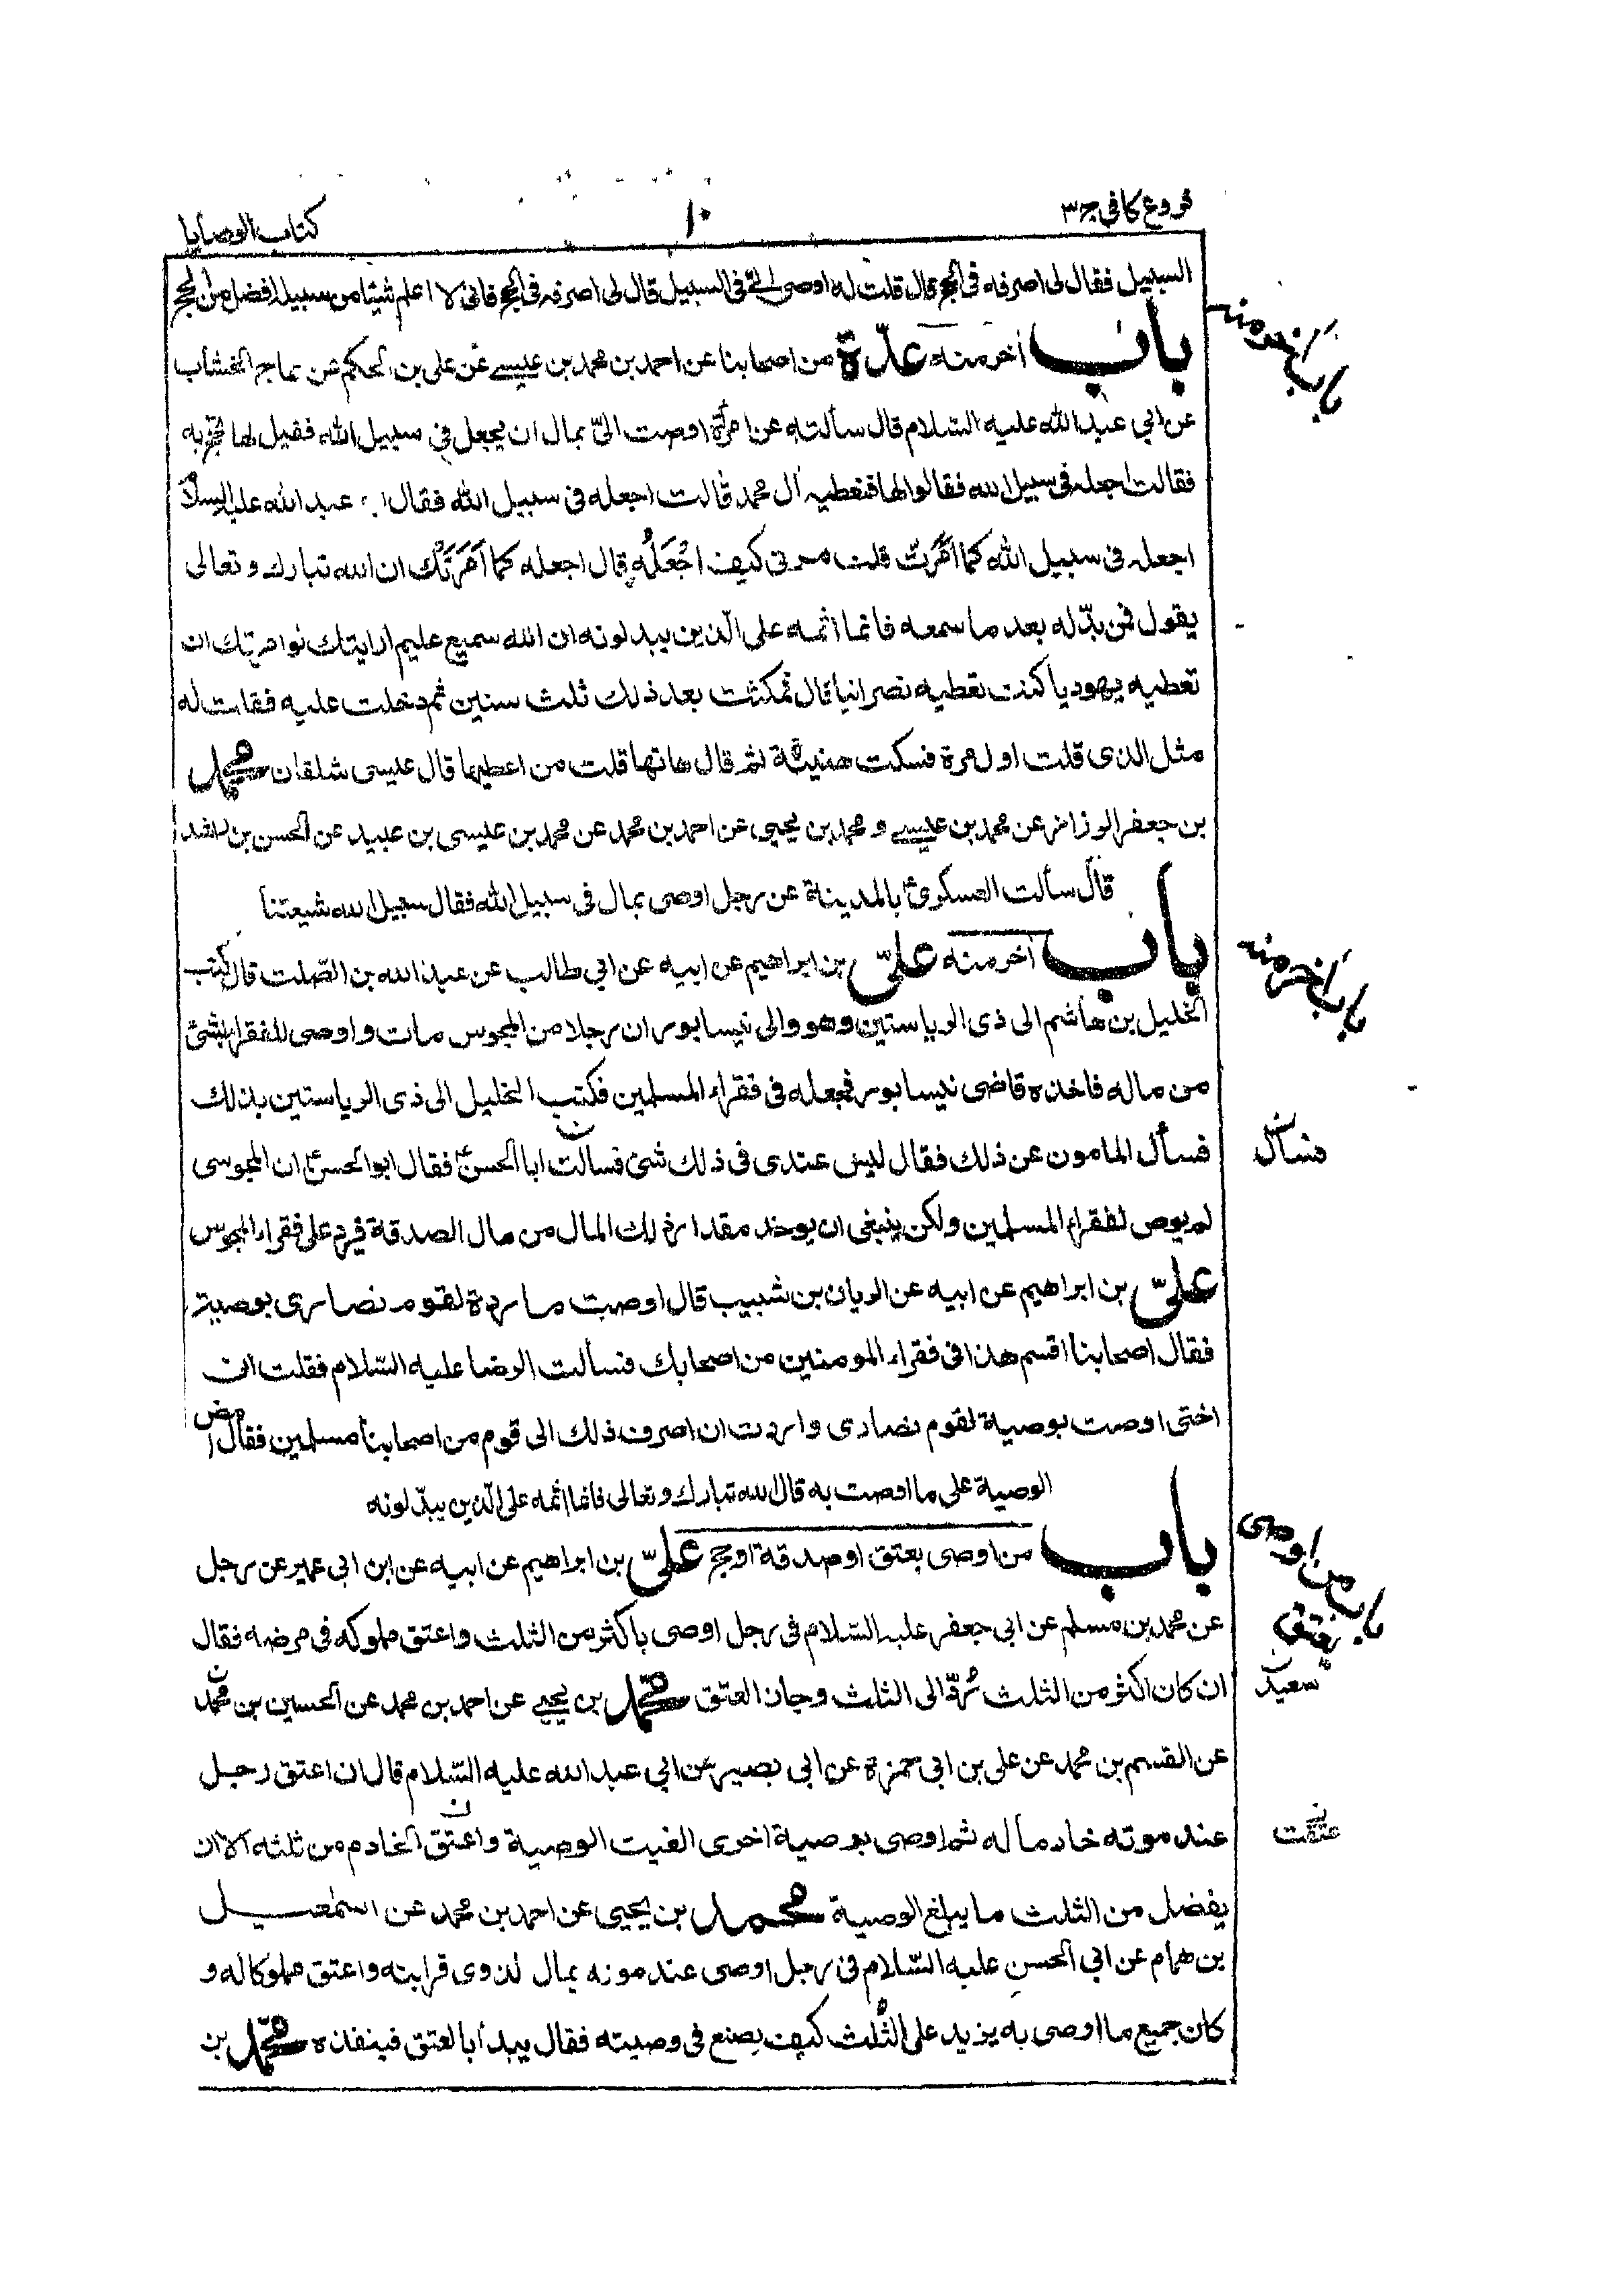 فروع كافى ج ٣
١٠
كتاب الوصايا
السبيل فقال لى اصرفه فى الحج قال قلت له اوصى الىّ فى السبيل قال لى اصرفه فى الحج فانى لا اعلم شيئا من سبيله افضل من الحج
باب اخر منه عدّة من اصحابنا عن احمد بن محمد بن عيسى عن على بن الحكم عن حجاج الخشاب
عن ابي عبد الله عليه السّلام قال سألته عن امرأة اوصت الىّ بمال ان يجعل فى سبيل الله فقيل لها نحج به
فقالت اجعله فى سبيل الله فقالوا لها فنعطيه آل محمد قالت اجعله فى سبيل الله فقال عبد الله عليه السلام
اجعله فى سبيل الله كما اَمَرَت قلت مرنى كيف اجْعَلُه قال اجعله كما اَمَرَتْك ان الله تبارك وتعالى
يقول فمن بدّله بعد ما سمعه فانما اثمه على الّذين يبدلونه ان الله سميع عليم ارايتك لو امرتك ان
تعطيه يهوديا كنت تعطيه نصرانيا قال فمكثت بعد ذلك ثلث سنين ثم دخلت عليه فقلت له
مثل الذى قلت اول مرة فسكت هنيئة ثم قال هاتها قلت من اعطيها قال عيسى شلقان محمد
بن جعفر الرزاز عن محمد بن عيسى و محمد بن يحيى عن احمد بن محمد عن محمد بن عيسى بن عبيد عن الحسن بن راشد
قال سألت العسكرى ع بالمدينة عن رجل اوصى بمال فى سبيل الله فقال سبيل الله شيعتنا
باب اخر منه علىّ بن ابراهيم عن ابيه عن ابي طالب عن عبد الله بن الصّلت قال كتب
الخليل بن هاشم الى ذى الرياستين وهو والى نيسابور ان رجلا من المجوس مات واوصى للفقراء بشئ
من ماله فاخذه قاضى نيسابور فجعله فى فقراء المسلمين فكتب الخليل الى ذى الرياستين بذلك
فسأل المامون عن ذلك فقال ليس عندى فى ذلك شئ فسالت ابا الحسن ع فقال ابو الحسن ع ان المجوسى
لم يوص لفقراء المسلمين ولكن ينبغى ان يوخذ مقدار ذلك المال من مال الصدقة فيرد على فقراء المجوس
علىّ بن ابراهيم عن ابيه عن الريان بن شبيب قال اوصت ماردة لقوم نصارى بوصية
فقال اصحابنا اقسم هذا فى فقراء المومنين من اصحابك فسألت الرضا عليه السّلام فقلت ان
اختى اوصت بوصية لقوم نصارى واردت ان اصرف ذلك الى قوم من اصحابنا مسلمين فقال امض
الوصية على ما اوصت به قال الله تبارك وتعالى فانما اثمه على الّذين يبدّلونه
باب من اوصى بعتق او صدقة او حج علىّ بن ابراهيم عن ابيه عن ابن ابي عمير عن رجل
عن محمد بن مسلم عن ابي جعفر عليه السّلام فى رجل اوصى باكثر من الثلث واعتق مملوكه فى مرضه فقال
ان كان اكثر من الثلث رُدّ الى الثلث وجاز العتق محمّد بن يحيى عن احمد بن محمد عن الحسين بن محمّد
عن القسم بن محمد عن على بن ابي حمزة عن ابي بصير عن ابي عبد الله عليه السّلام قال ان اعتق رجل
عند موته خادما له ثم اوصى بوصية اخرى الغيت الوصية واعتق الخادم من ثلثه الا ان
يفضل من الثلث ما يبلغ الوصية محمد بن يحيى عن احمد بن محمد عن اسمٰعيل
بن همام عن ابي الحسن عليه السّلام فى رجل اوصى عند موته بمال لذوى قرابته واعتق مملوكا له و
كان جميع ما اوصى به يزيد على الثُلث كيف يصنع فى وصيته فقال يبدأ بالعتق فينفذه محمّد بن
باب اخر منه
باب اخر منه
فسال
باب من اوصى
بعتق
سعيد
عتقت